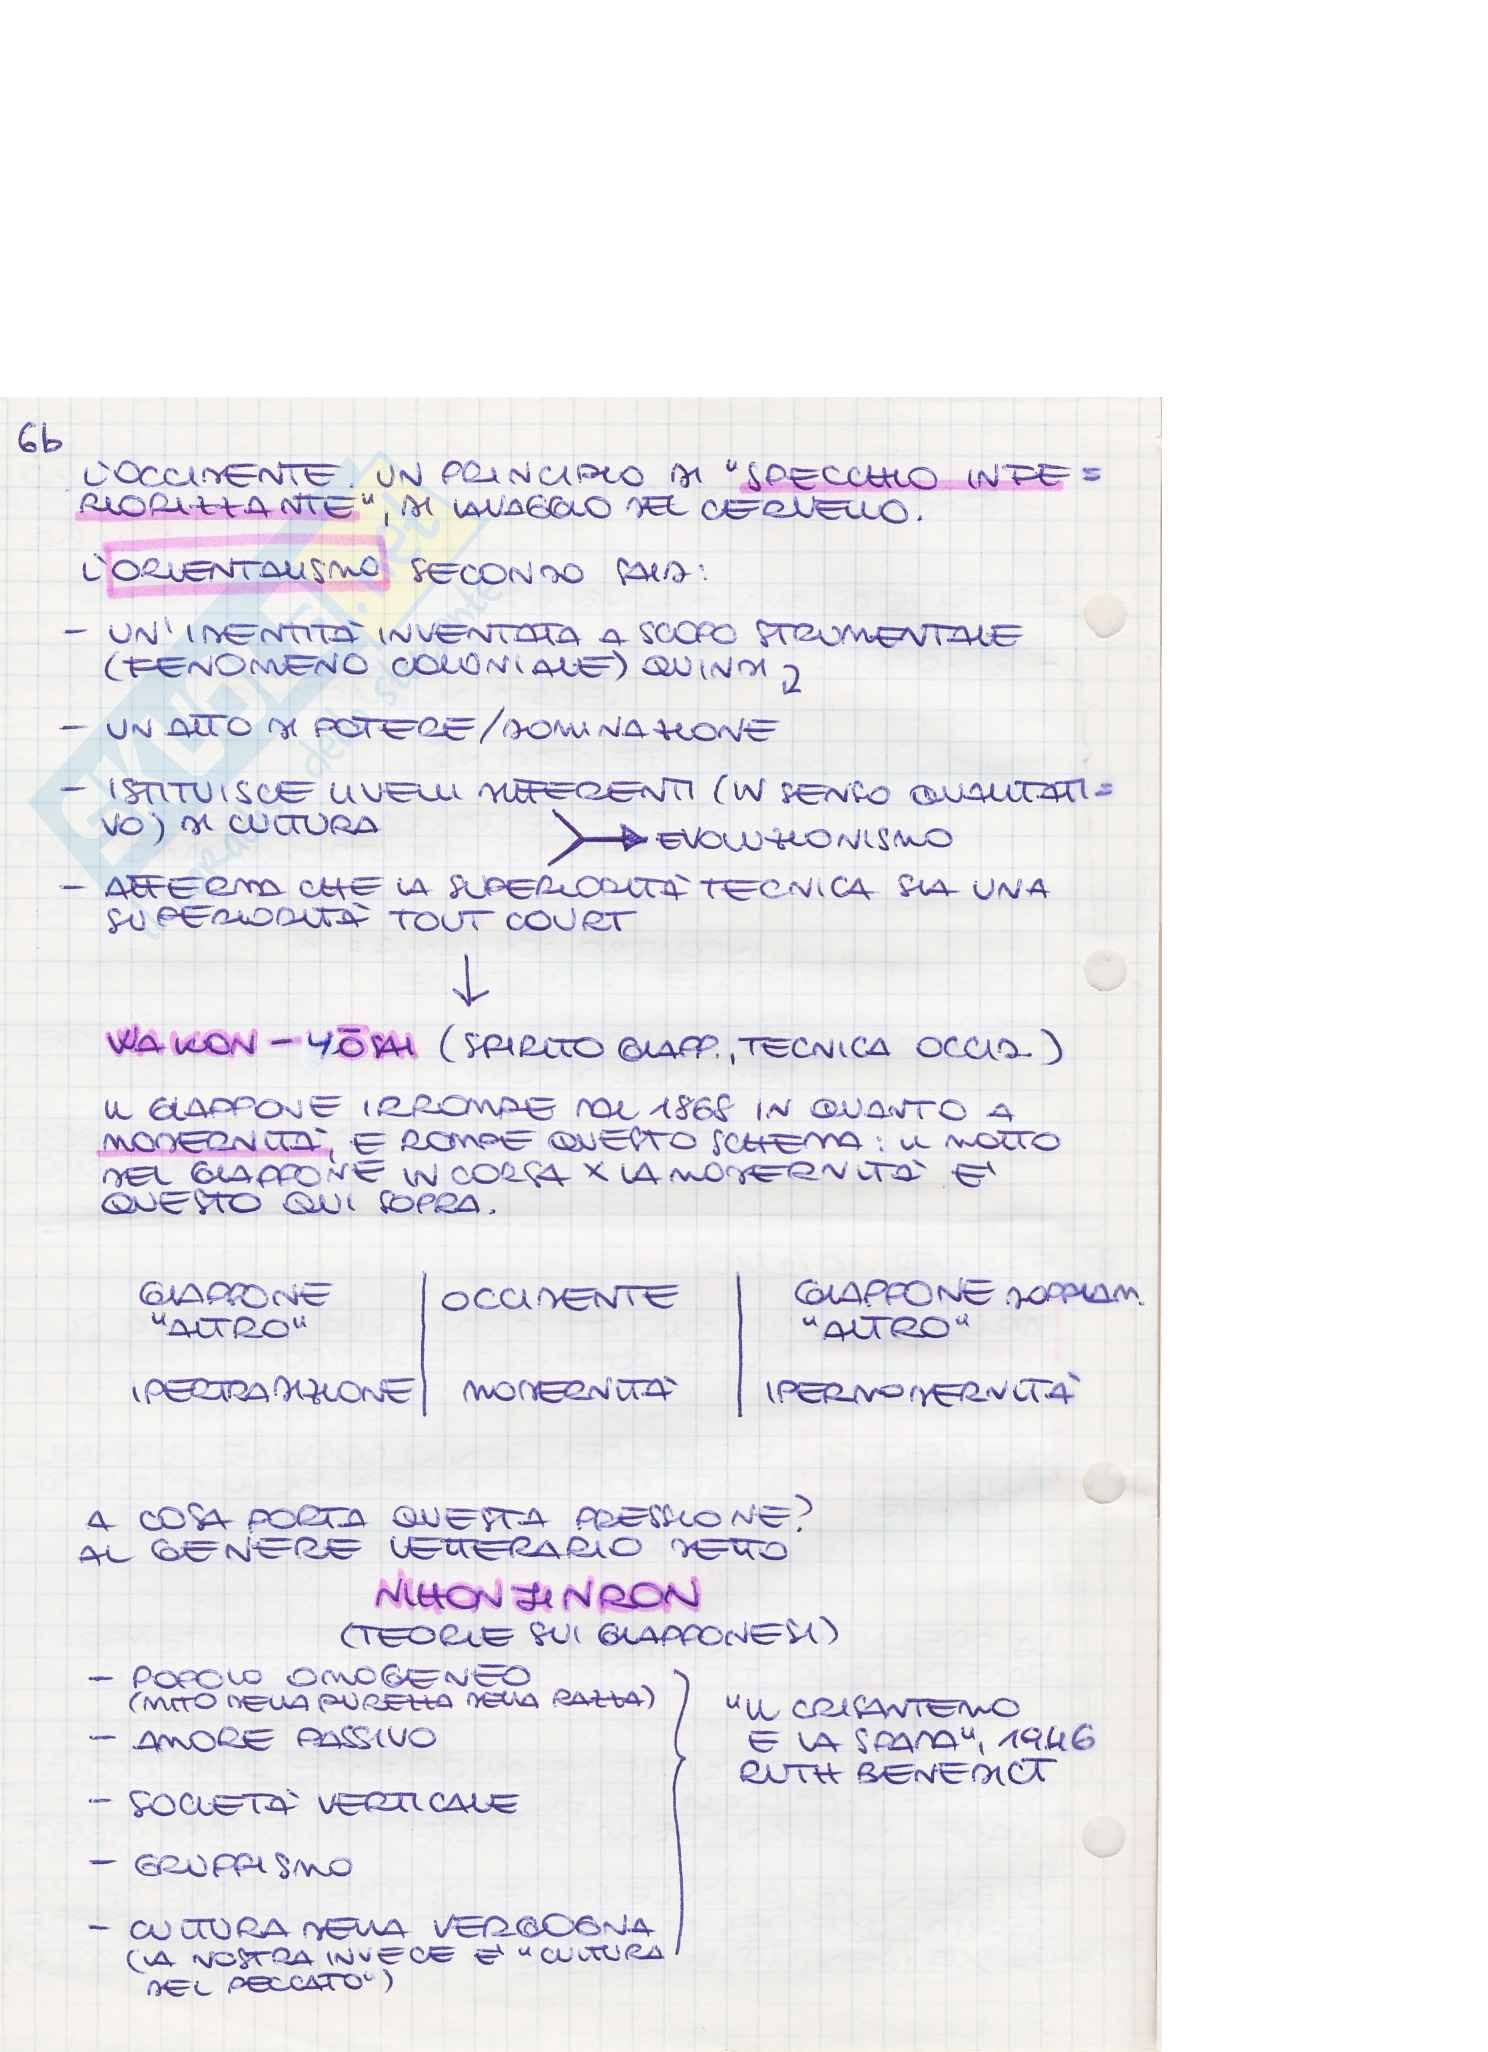 6b
L'OCCIDENTE. UN PRINCIPIO DI "SPECCHIO INFE=
RIORIZZANTE", DI LAVAGGIO DEL CERVELLO.
L'ORIENTALISMO SECONDO SAID:
- UN'IDENTITÀ INVENTATA A SCOPO STRUMENTALE
(FENOMENO COLONIALE) QUINDI
- UN ATTO DI POTERE/DOMINAZIONE
- ISTITUISCE LIVELLI DIFFERENTI (IN SENSO QUALITATI=
VO) DI CULTURA
EVOLUZIONISMO
- AFFERMA CHE LA SUPERIORITÀ TECNICA SIA UNA
SUPERIORITÀ TOUT COURT
↓
WAKON - YŌSAI (SPIRITO GIAPP., TECNICA OCCID.)
IL GIAPPONE IRROMPE DAL 1868 IN QUANTO A
MODERNITÀ, E ROMPE QUESTO SCHEMA: IL MOTTO
DEL GIAPPONE IN CORSA X LA MODERNITÀ E'
QUESTO QUI SOPRA.
GIAPPONE "ALTRO" | OCCIDENTE | GIAPPONE DOPPIAM. "ALTRO"
IPERTRADIZIONE | MODERNITÀ | IPERMODERNITÀ
A COSA PORTA QUESTA PRESSIONE?
AL GENERE LETTERARIO DETTO
NIHONJINRON
(TEORIE SUI GIAPPONESI)
- POPOLO OMOGENEO
(MITO DELLA PUREZZA DELLA RAZZA)
- AMORE PASSIVO
- SOCIETÀ VERTICALE
- GRUPPISMO
- CULTURA DELLA VERGOGNA
(LA NOSTRA INVECE E' "CULTURA
DEL PECCATO")
"IL CRISANTEMO
E LA SPADA", 1946
RUTH BENEDICT